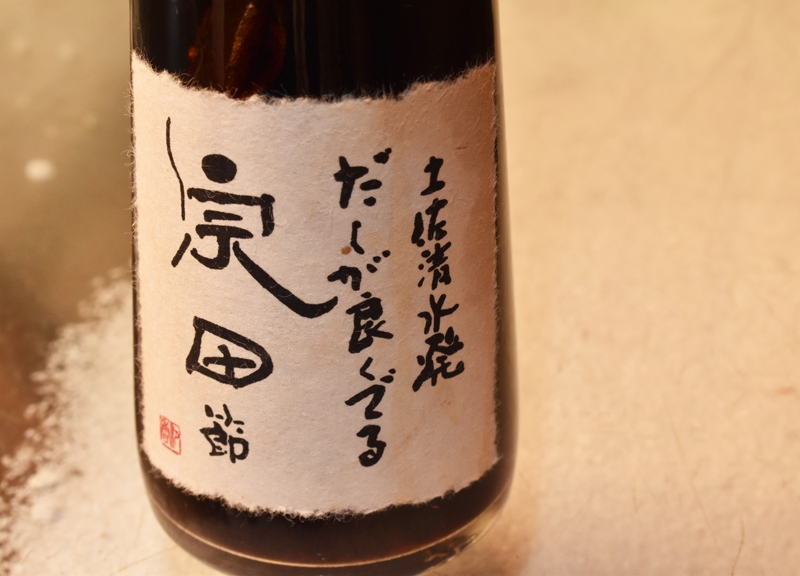 土佐清水発
だしが良くでる
宗田節